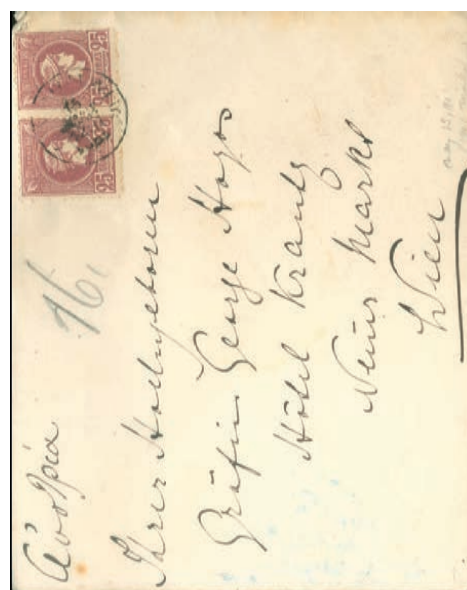 Αυστρία
16
Ihrer Hochgeboren
Gräfin George Hoyos
Hôtel Krantz
Neuer Markt
Wien
25
25
25
25